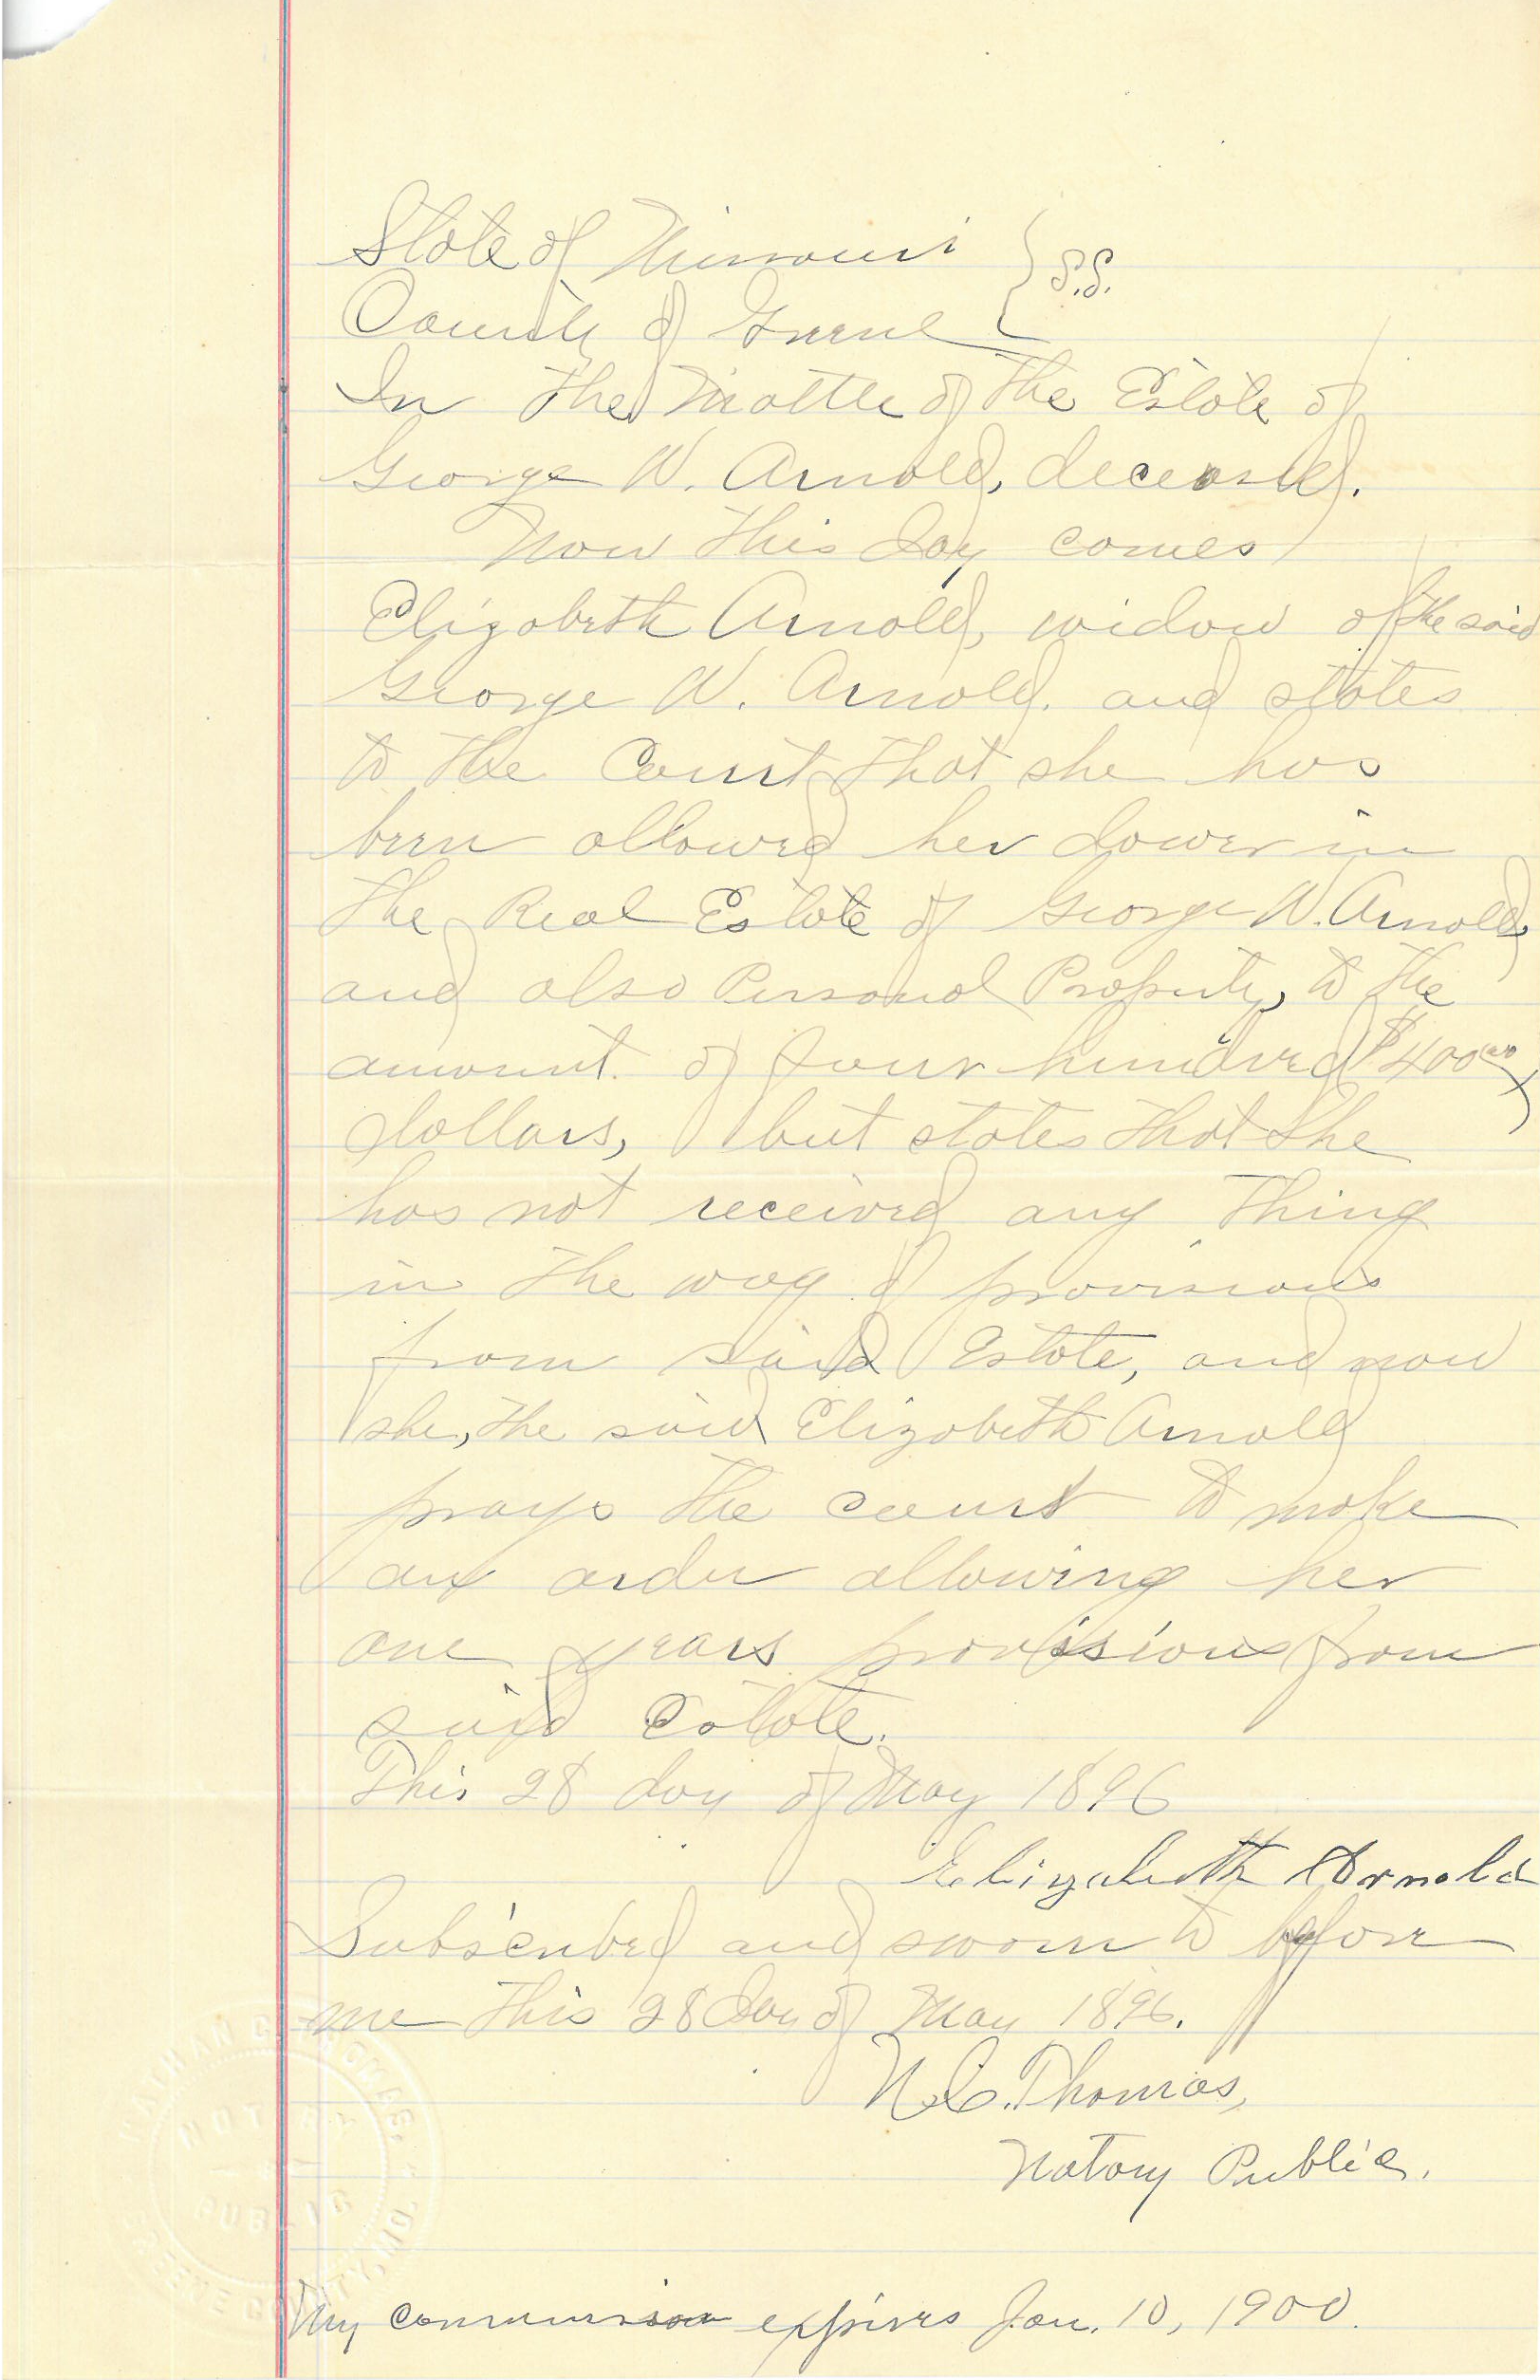 State of Missouri } S.S.
County of Greene
In the Matter of the Estate of
George W. Arnold, deceased.
Now this day comes
Elizabeth Arnold, widow of the said
George W. Arnold. and states
to the Court that she has
been allowed her dower in
the Real Estate of George W. Arnold,
and also Personal Property, to the
amount of four hundred $400.00
dollars, but states that she
has not received any thing
in the way of provisions
from said Estate, and now
she, the said Elizabeth Arnold
prays the court to make
an order allowing her
one years provisions from
said Estate.
This 28 day of May 1896
Elizabeth Arnold
Subscribed and sworn to before
me this 28 day of May 1896.
Thomas,
Notary Public.
My commission expires Jan. 10, 1900.
NOTARY
PUBLIC
GREENE